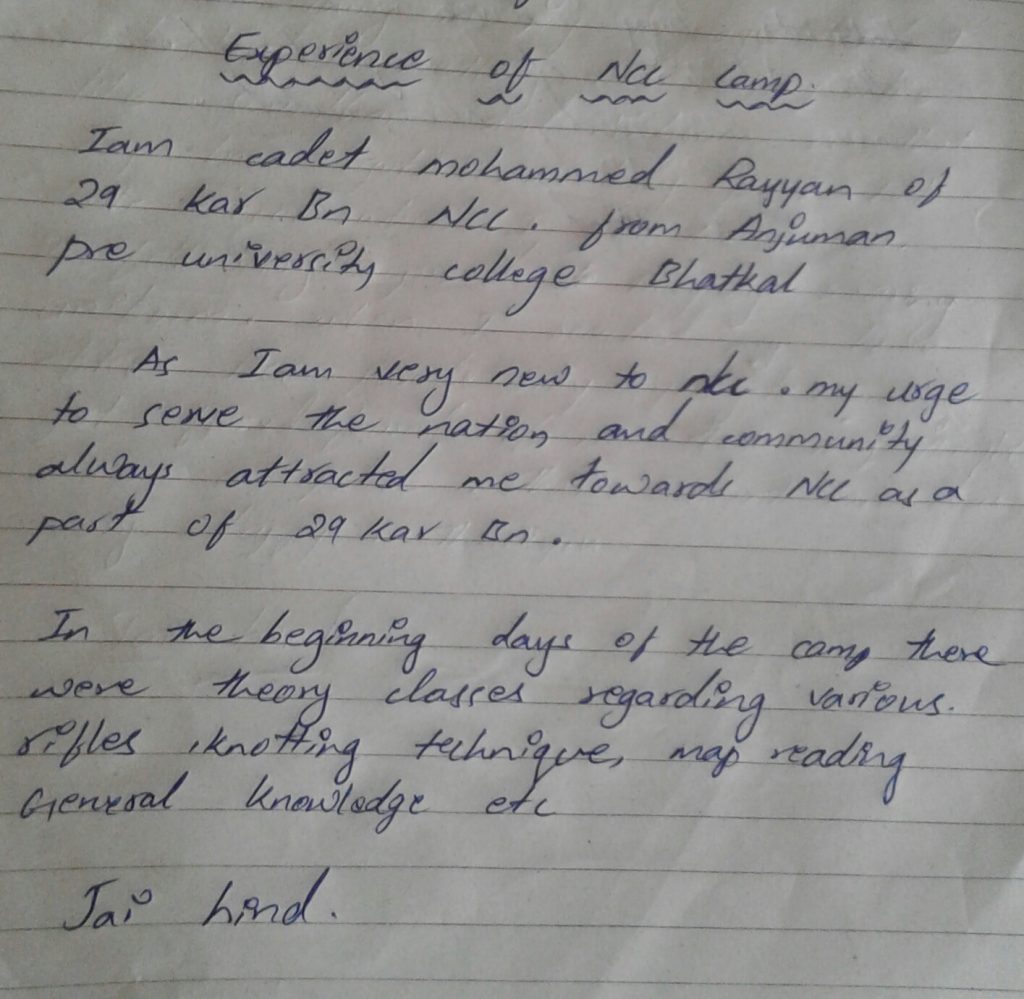 Experience of Ncc camp.
Iam cadet mohammed Rayyan of
29 Kar Bn Ncc. from Anjuman
pre university college Bhatkal
As Iam very new to ncc. my urge
to serve the nation and community
always attracted me towards Ncc as a
part of 29 Kar Bn.
In the beginning days of the camp there
were theory classes regarding various.
rifles, knotting technique, map reading
General knowledge etc
Jai hind.